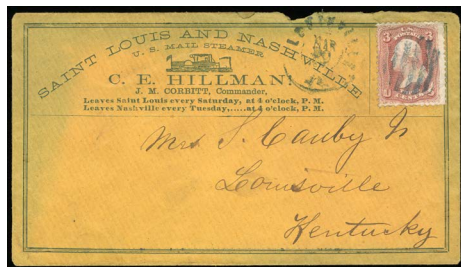 SAINT LOUIS AND NASHVILLE
U. S. MAIL STEAMER
C. E. HILLMAN!
J. M. CORBITT, Commander,
Leaves Saint Louis every Saturday, at 4 o'clock, P. M.
Leaves Nashville every Tuesday,.....at 4 o'clock, P. M.
3 3
Mrs S. Canby Jr
Louisville
Kentucky